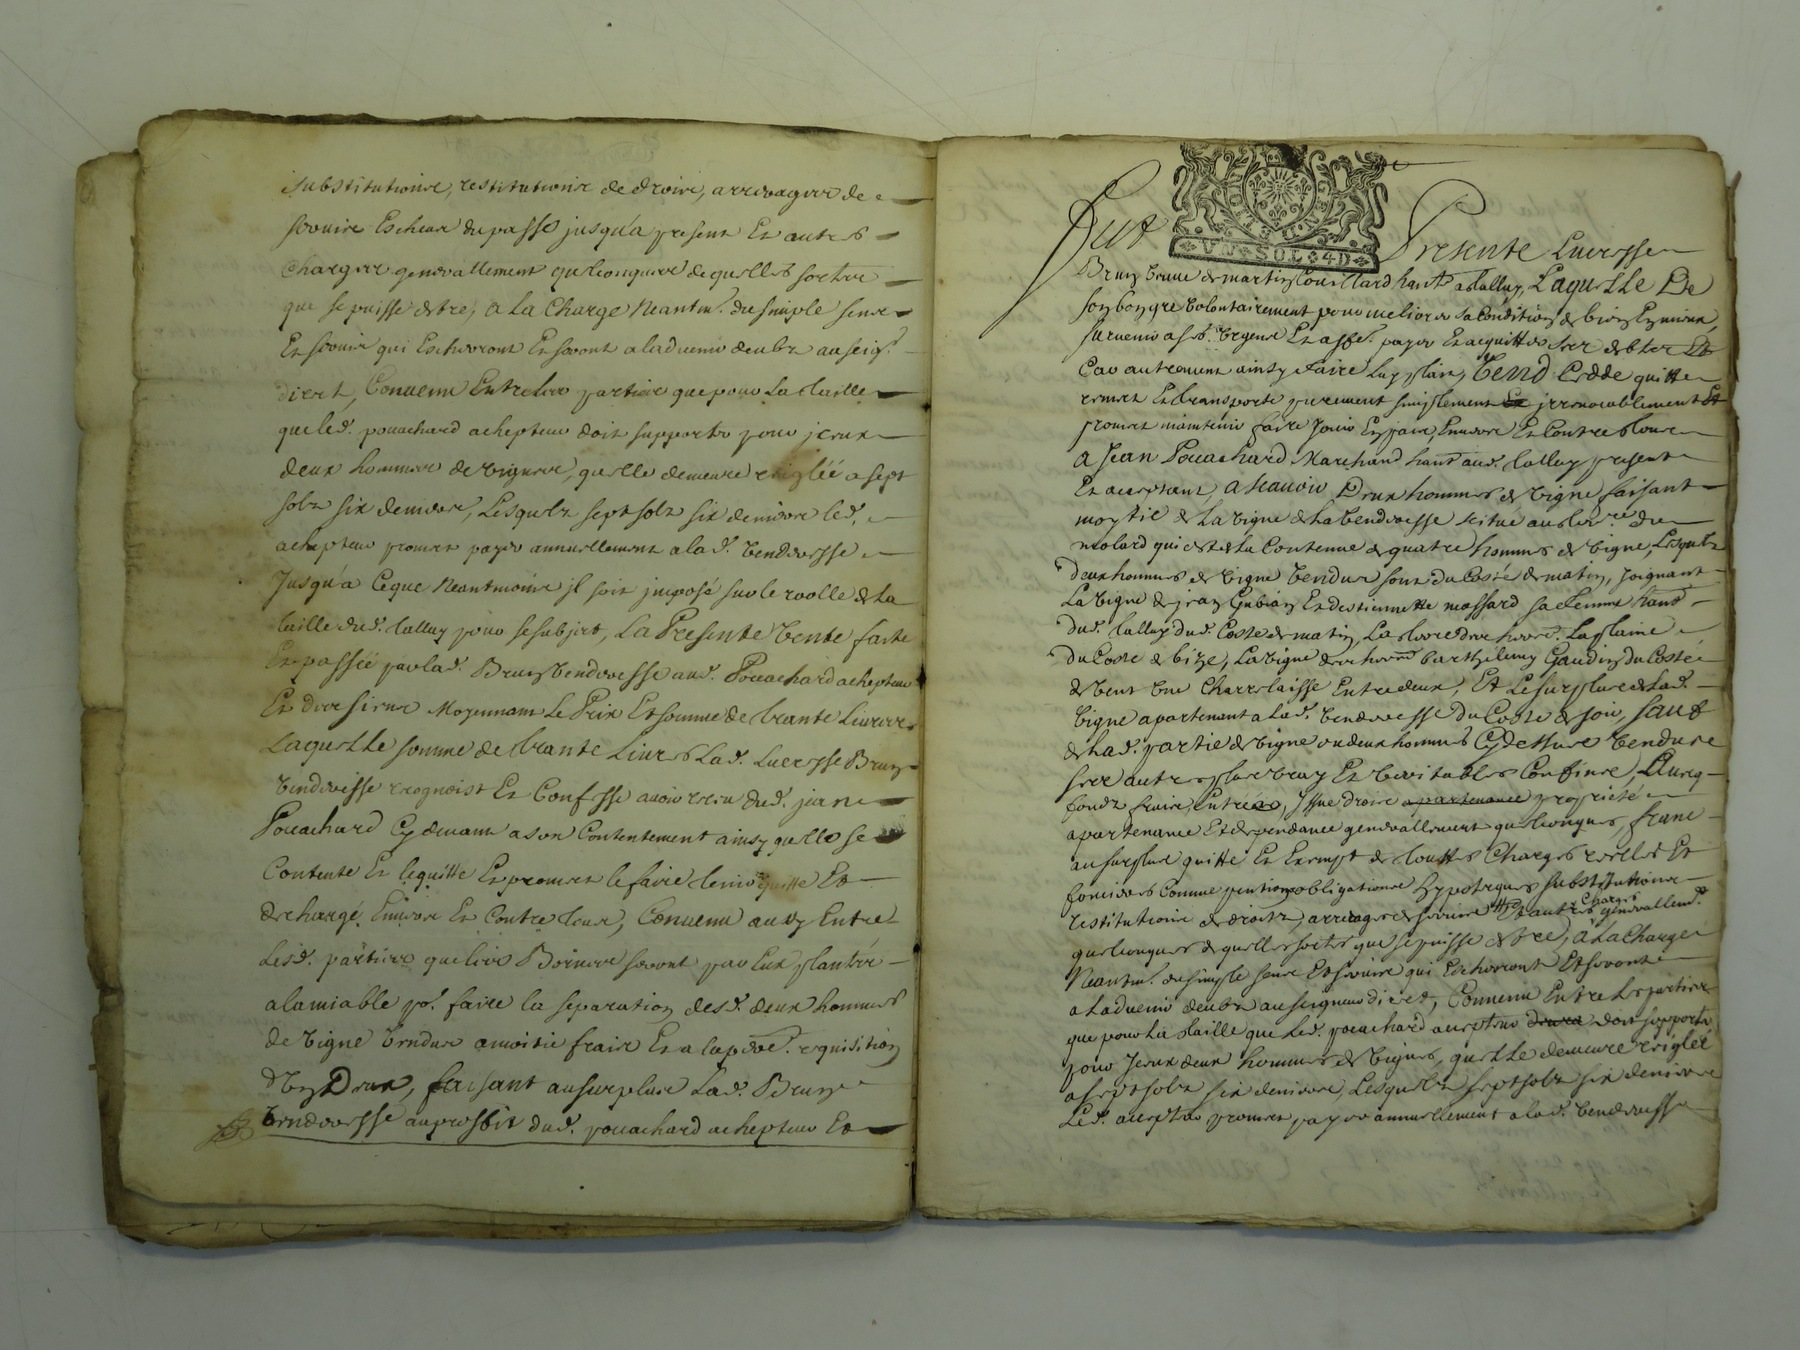 substitutions, restitutions de droits, arrerages de
servis Escheus du passé jusqu'a present Et autres
Charges generallement quelconques de quelles sortes
que se puisse estre, a La Charge Neantm.s du simple sens
Et servis qui Escherront Et seront a ladvenir deubz au seig.r
direct, Convenu Entre les parties que pour La taille
que led. pouachard achepteur doit supporter pour jceux
deux hommes de vignes, quelle demeure reiglée a sept
solz six deniers, Lesquelz sept solz six deniers led.
achepteur promet payer annuellement a lad. venderesse
Jusqu'a Ceque Neantmoins jl soit jmposé sur le roolle de La
taille dud. talluy pour se subjet, La Presente vente faite
Et passée par lad. Brun venderesse aud. Pouachard achepteur
Et aux siens Moyennant Le Prix Et somme de trante Livres
Laquelle somme de trante Livres Lad. Lucresse Brun
venderesse recognoist Et Confesse avoir receu dud. jean
Pouachard Cy devant a son Contentement ainsy quelle se
Contente Et lequitte Et promet le faire tenir quitte Et
dechargé Envers Et Contre tous, Convenu aussy Entre
Lesd. parties que les Bornes seront par Eux plantés
a lamiable po.r faire la separation desd. deux hommes
de vigne vendus a moitié frais Et a la p.re requisition
d'un Deux, faisant au surplus Lad. Brun
venderesse au proffit dud. pouachard achepteur Et
VN · SOL · 4D
Fut Presente Lucresse
Brun veuve de martin Couillard hant a talluy, Laquelle De
son bon gre volontairement pour meliorer sa Condition de bien En mieux,
survenir a ses urgens Et aff.s payer Et acquitter ses debtes Et
Car autrement ainsy faire luy plait, Vend Cedde quitte
remet Et transporte purement simplement Et jrrevocablement Et
promet maintenir faire Jouir En paix, Envers Et Contre tous
a Jean Pouachard Marchand hant aud. talluy present
Et acceptant, a scavoir Deux hommes de vigne faisant
moytié de La vigne de La venderesse scitué au terr.re du
molard qui est de La Contenue de quatre hommes de vigne, Lesquelz
deux hommes de vigne vendus sont du Costé de matin, Joignant
La vigne de jean Gubian Et d'estiennette mossard sa femme hant
dud. talluy dud. Coste de matin, La terre des hoirs Laplaine
du Coste de bize, La vigne des hoirs barthelemy Gaudin du Costé
de vent une Charrelaisse Entre deux, Et Le surplus de Lad.
vigne apartenant a Lad. venderesse du Coste de soir, sauf
de Lad. partie de vigne ou deux hommes Cy dessus vendus
ses autres plus vray Et veritables Confins, Avec
fondz fruis, Entrées, Jssue droit apartenance proprieté
apartenance Et dependance generallement quelconques, franc
au surplus quitte Et Exempt de touttes Charges reelles Et
foncieres Comme pentions obligations hypoteques substitutions
restitutions de droits, arrerages de servis Et autres Charges generallem.t
quelconques de quelles sortes que se puisse estre, a La Charge
Neantm.s du simple sens Et servis qui Escherront Et seront
a Ladvenir deubz au seigneur direct, Convenu Entre Les parties
que pour La taille que Led. pouachard accepteur devra doit supporter
pour Jceux deux hommes de vignes, quelle demeure reiglée
a sept solz six deniers, Lesquelz sept solz six deniers
Led. accepteur promet payer annuellement a lad. venderesse